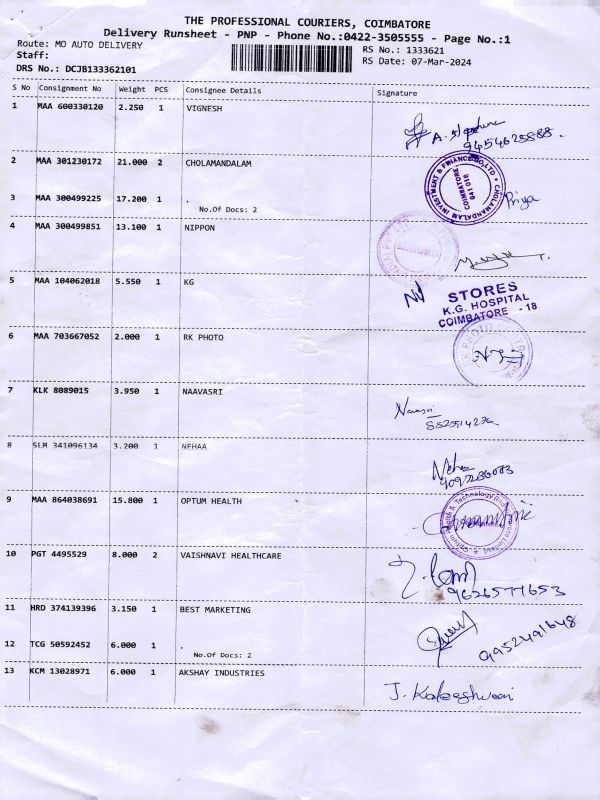 THE PROFESSIONAL COURIERS, COIMBATORE
Delivery Runsheet - PNP - Phone No.:0422-3505555 - Page No.:1
Route: MO AUTO DELIVERY RS No.: 1333621
Staff: RS Date: 07-Mar-2024
DRS No.: DCJB133362101
S No Consignment No Weight PCS Consignee Details Signature
1 MAA 600330120 2.250 1 VIGNESH
2 MAA 301230172 21.000 2 CHOLAMANDALAM
CHOLAMANDALAM INVESTMENT & FINANCE CO. LTD
COIMBATORE
641 018
3 MAA 300499225 17.200 1 . Priya
No.Of Docs: 2
4 MAA 300499851 13.100 1 NIPPON
5 MAA 104062018 5.550 1 KG
STORES
K.G. HOSPITAL
COIMBATORE - 18
6 MAA 703667052 2.000 1 RK PHOTO
7 KLK 8089015 3.950 1 NAAVASRI
8 SLM 341096134 3.200 1 NEHAA
Neha
9 MAA 864038691 15.800 1 OPTUM HEALTH
10 PGT 4495529 8.000 2 VAISHNAVI HEALTHCARE
9626577653
11 HRD 374139396 3.150 1 BEST MARKETING
9952491648
12 TCG 50592452 6.000 1 .
No.Of Docs: 2
13 KCM 13028971 6.000 1 AKSHAY INDUSTRIES
J. Kaleeshwari